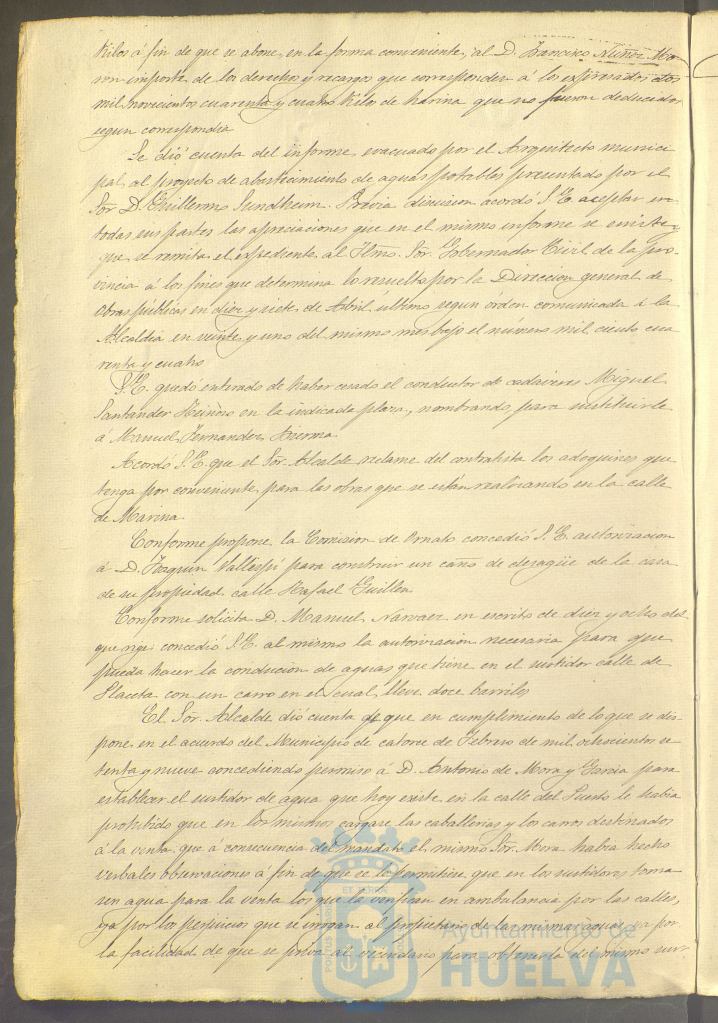 Kilos á fin de que se abone, en la forma conveniente, al D. Francisco Nuñez Mo-
ron importe de los derechos y recargos que corresponden á los expresados dos
mil novecientos cuarenta y cuatro Kilos de harina que no fueron deducidos
segun correspondia
Se dió cuenta del informe, evacuado por el Arquitecto munici
pal, al proyecto de abastecimiento de aguas potables presentado por el
Sor D. Guillermo Sundheim. Previa discusion acordó S.E. aceptar en
todas sus partes las apreciaciones que en el mismo informe se emiten y
que se remita el expediente al Iltmo. Sor. Gobernador Civil de la pro-
vincia á los fines que determina lo resuelto por la Direccion general de
Obras públicas en diez y siete de Abril último segun orden comunicada á la
Alcaldia en veinte y uno del mismo mes bajo el número mil ciento cua
renta y cuatro
S.E. quedo enterado de haber cesado el conductor de cadáveres Miguel
Santander en la indicada plaza, nombrando para sustituirle
á Manuel Fernandez
Acordó S.E. que el Sor. Alcalde reclame del contratista los adoquines que
tenga por conveniente para las obras que se están realizando en la calle
de Marina.
Conforme propone la Comision de Ornato concedió S.E. autorizacion
á D. Joaquin Vallespi para construir un caño de desagüe de la casa
de su propiedad calle Rafael Guillen
Conforme solicita D. Manuel Narvaez en escrito de diez y ocho del
que rige concedió S.E. al mismo la autorizacion necesaria para que
pueda hacer la conducion de aguas que tiene en el surtidor calle de
Placeta con un carro en el cual lleve doce barriles
El Sor. Alcalde dió cuenta de que en cumplimiento de lo que se dis
pone en el acuerdo del Municipio de catorce de Febrero de mil ochocientos se
tenta y nueve concediendo permiso á D. Antonio de Mora y Garcia para
establecer el surtidor de agua que hoy existe en la calle del Puerto le habia
prohibido que en los mismos cargase las caballerias y los carros destinados
á la venta, que á consecuencia del mandato el mismo Sor. Mora habia hecho
verbales observaciones á fin de que se le permitiese que en los surtidores toma
sen agua para la venta los que la verifican en ambulancia por las calles,
ya por los perjuicios que se irrogan al propietario de las mismas aguas, ya por
la facilidad de que se priva al vecindario para obtenerla del mismo sur-
Ayuntamiento de
HUELVA